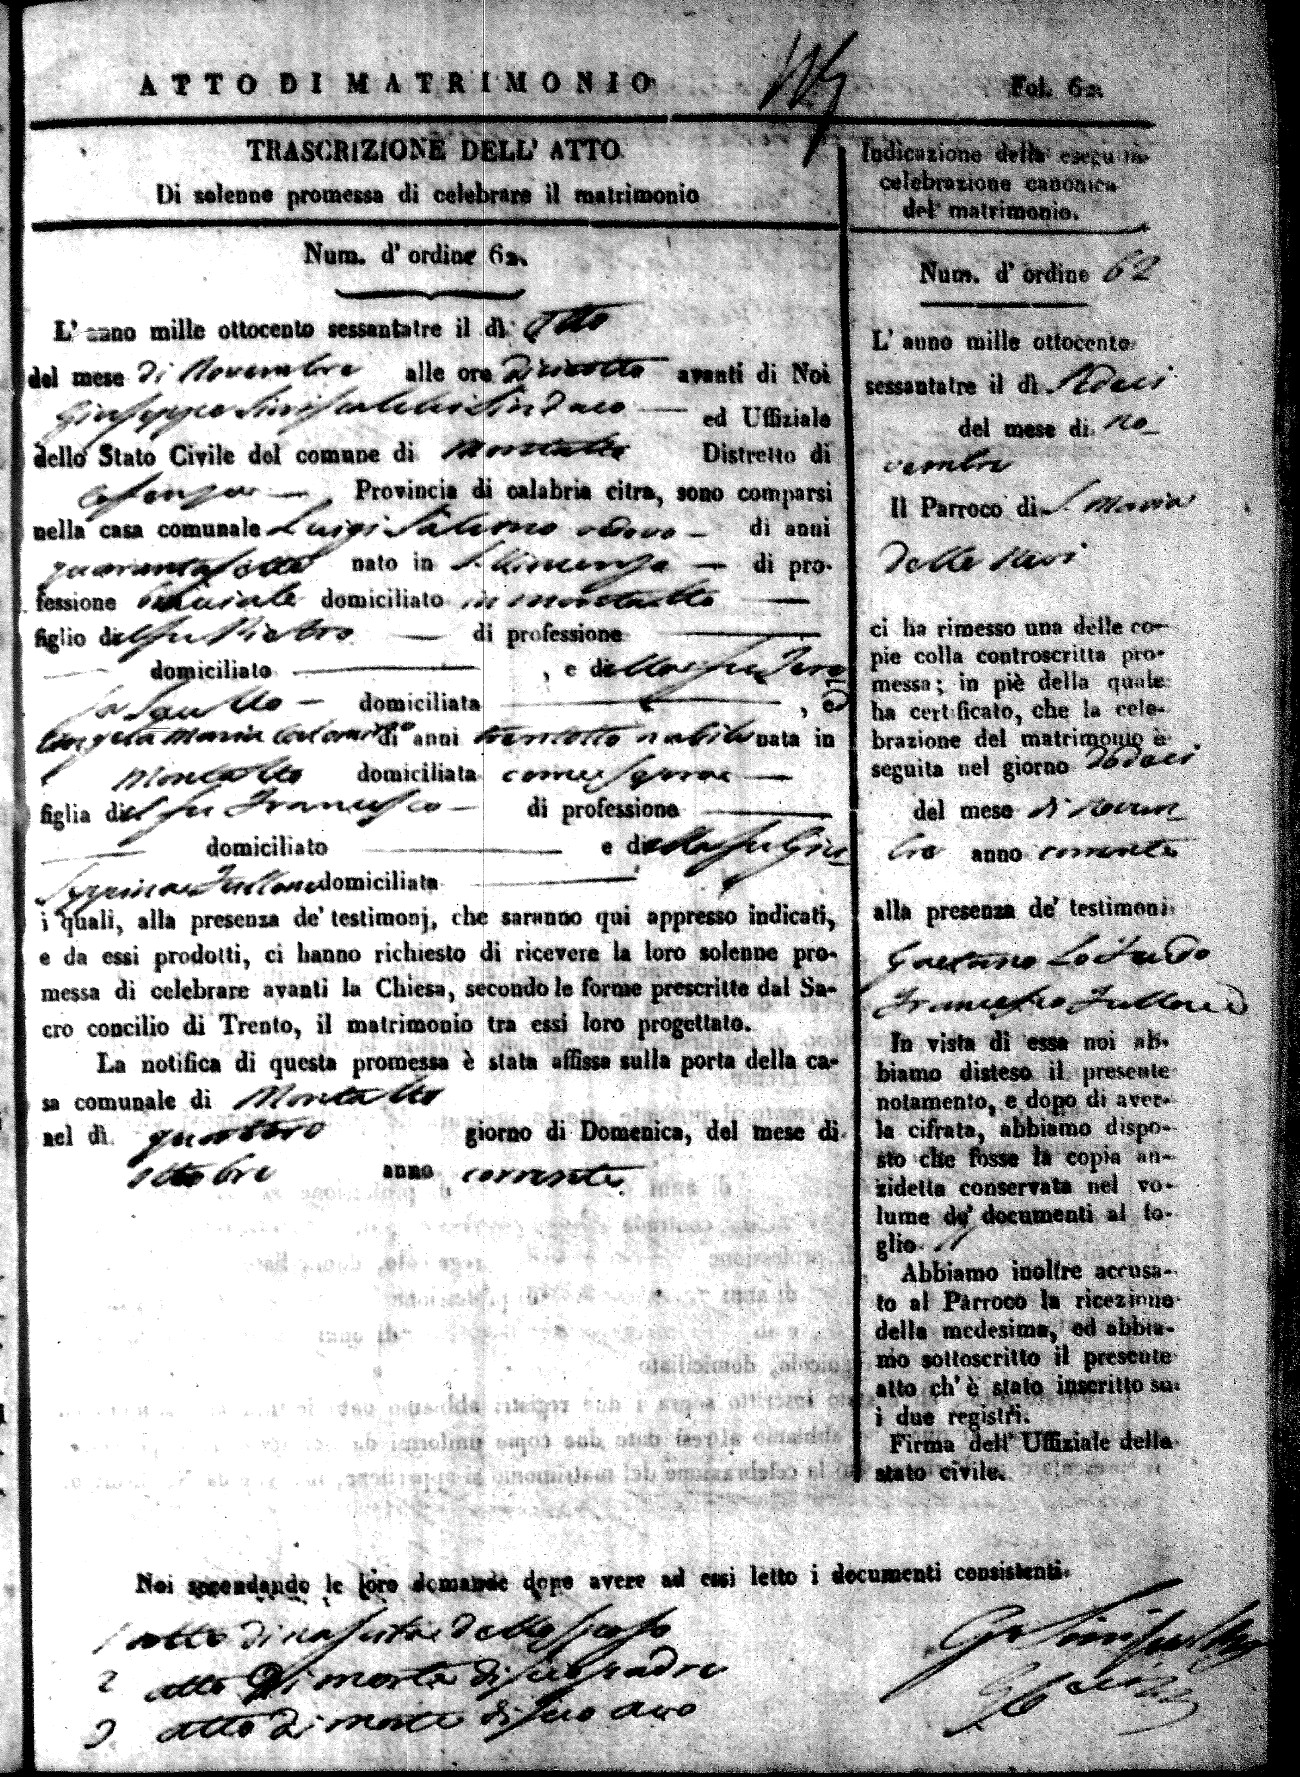 ATTO DI MATRIMONIO
Fol. 62.
TRASCRIZIONE DELL' ATTO
Di solenne promessa di celebrare il matrimonio
Num. d' ordine 62.
L' anno mille ottocento sessantatre il dì Otto
del mese di Novembre alle ore diciotto avanti di Noi
Giuseppe Siniscalchi Sindaco ed Uffiziale
dello Stato Civile del comune di Montalto Distretto di
Cosenza Provincia di calabria citra, sono comparsi
nella casa comunale Luigi Salerno vedovo di anni
quarantasette nato in S. Vincenzo di pro-
fessione domiciliato in Montalto
figlio del fu Pietro di professione
domiciliato , e della fu Tere
sa domiciliata , e
Angela Maria di anni trentotto nubile nata in
Montalto domiciliata come sopra
figlia del fu Francesco di professione
domiciliato e della fu Giu
seppina Fullone domiciliata
i quali, alla presenza de' testimonj, che saranno qui appresso indicati,
e da essi prodotti, ci hanno richiesto di ricevere la loro solenne pro-
messa di celebrare avanti la Chiesa, secondo le forme prescritte dal Sa-
cro concilio di Trento, il matrimonio tra essi loro progettato.
La notifica di questa promessa è stata affissa sulla porta della ca-
sa comunale di Montalto
nel dì quattro giorno di Domenica, del mese di
Ottobre anno corrente
Indicazione della seguita
celebrazione canonica
del matrimonio.
Num. d' ordine 62
L' anno mille ottocento
sessantatre il dì Sedeci
del mese di No
vembre
Il Parroco di S. Maria
delle Nevi
ci ha rimesso una delle co-
pie colla controscritta pro-
messa; in piè della quale
ha certificato, che la cele-
brazione del matrimonio è
seguita nel giorno
del mese di Novem
bre anno corrente
alla presenza de' testimoni
Gaetano
Francesco Fullone
In vista di essa noi ab-
biamo disteso il presente
notamento, e dopo di aver-
la cifrata, abbiamo dispo-
sto che fosse la copia an-
zidetta conservata nel vo-
lume de' documenti al fo-
glio
Abbiamo inoltre accusa-
to al Parroco la ricezione
della medesima, ed abbia-
mo sottoscritto il presente
atto ch' è stato inscritto su
i due registri.
Firma dell' Uffiziale dello
stato civile.
Noi secondando le loro domande dopo avere ad essi letto i documenti consistenti
1 atto di nascita dello sposo
2 atto di morte di suo padre
3 atto di morte di suo avo